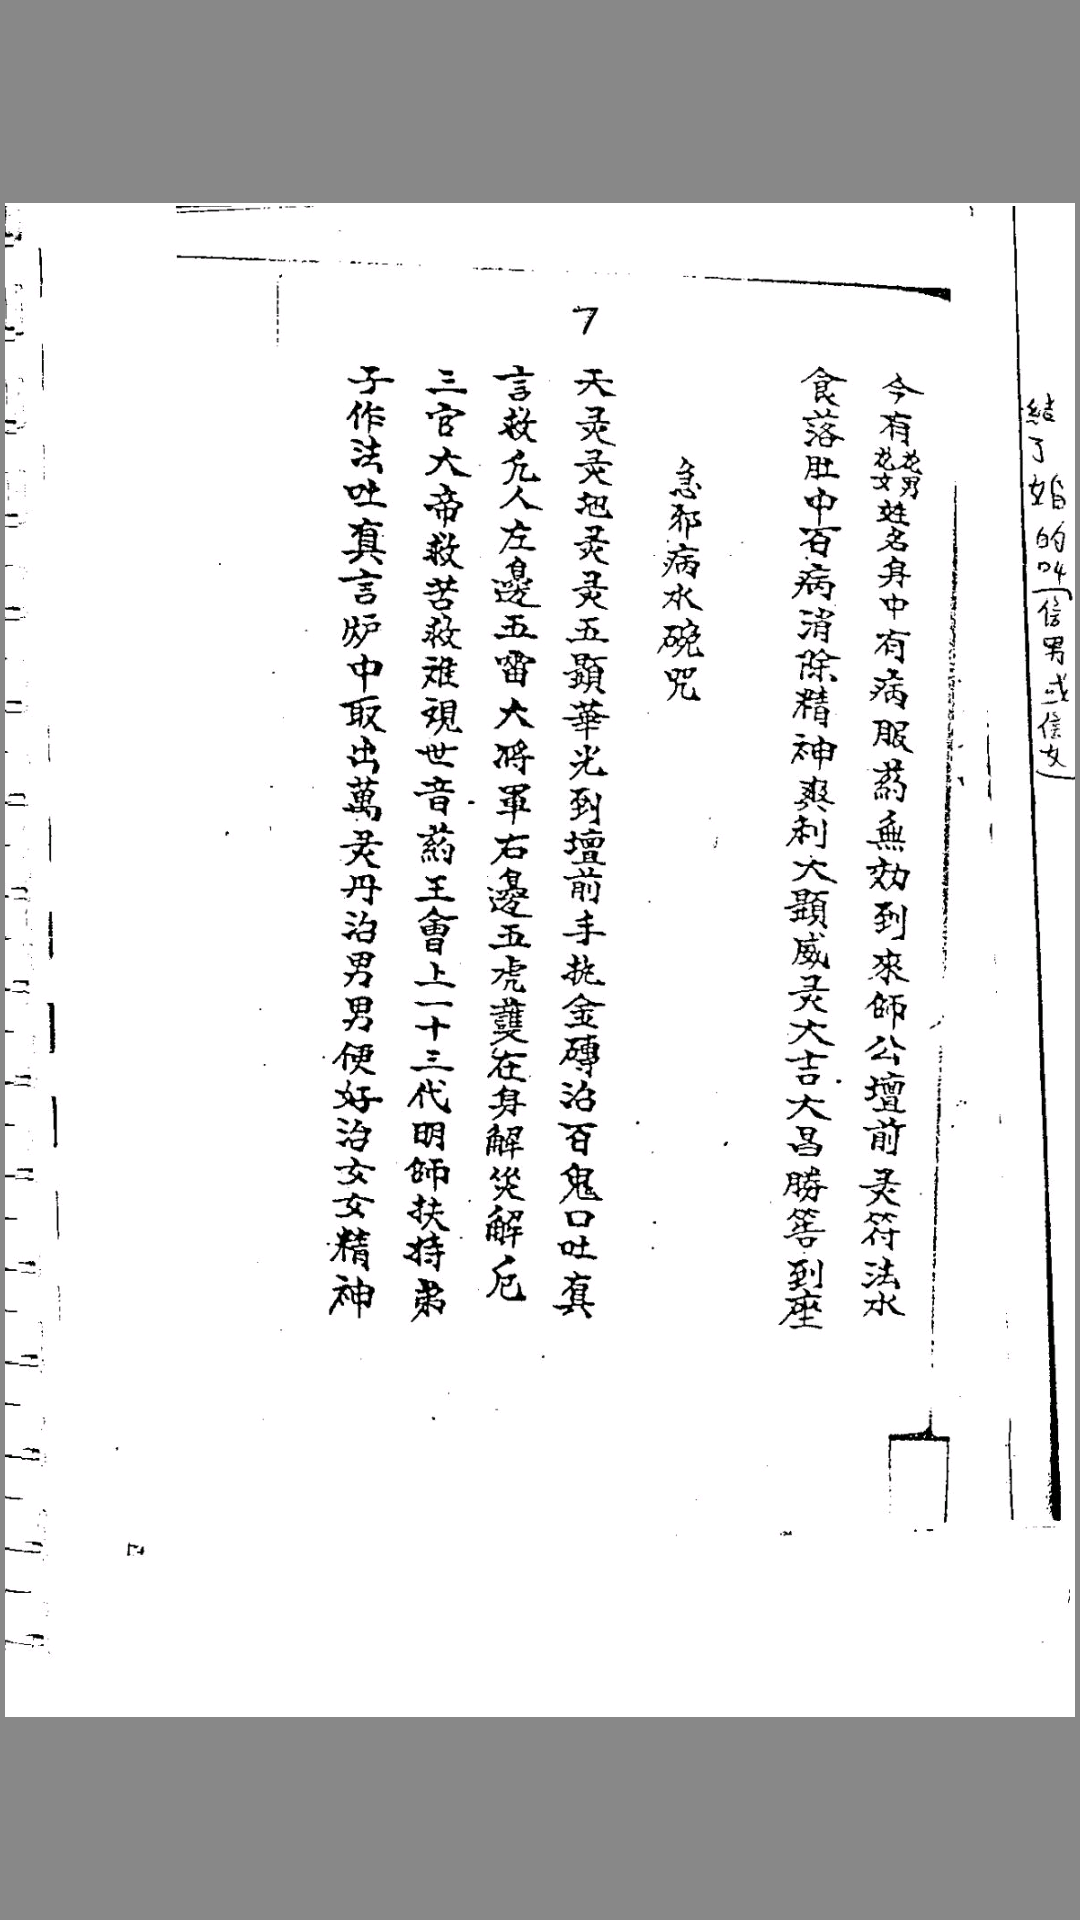 結了婚的叫(信男或信女)
今有花男花女姓名身中有病服葯無効到來師公壇前灵符法水
食落肚中百病消除精神爽利大顕威灵大吉大昌勝筶到座
急邪病水碗咒
7
天灵灵地灵灵五顕華光到壇前手执金磚治百鬼口吐真
言救凡人左邊五雷大將軍右邊五虎護在身解災解厄
三官大帝救苦救难視世音葯王會上一十三代明師扶持弟
子作法吐真言炉中取出萬灵丹治男男便好治女女精神